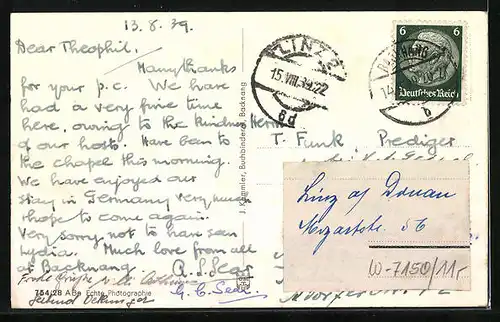 13.8.39.
Dear Theophil,
Many thanks
for your p.c. We have
had a very fine time
here, owing to the kindness
of our hosts. Have been to
the chapel this morning.
We have enjoyed our
stay in Germany very much
& hope to come again.
Very sorry not to have seen
Lydia. Much love from all
at Backnang. A. S. Sear
G. C. Sear
Frohe Grüße
754/28 A Be Echte Photographie
J. Knemler, Buchbinderei, Backnang
LINZ 2
15.VIII.39.22
8d
6 6
Deutsches Reich
BACKNANG
b
Herrn
T. Funk Prediger
Linz a/ Donau
Mozartstr. 56
W-7150/11r